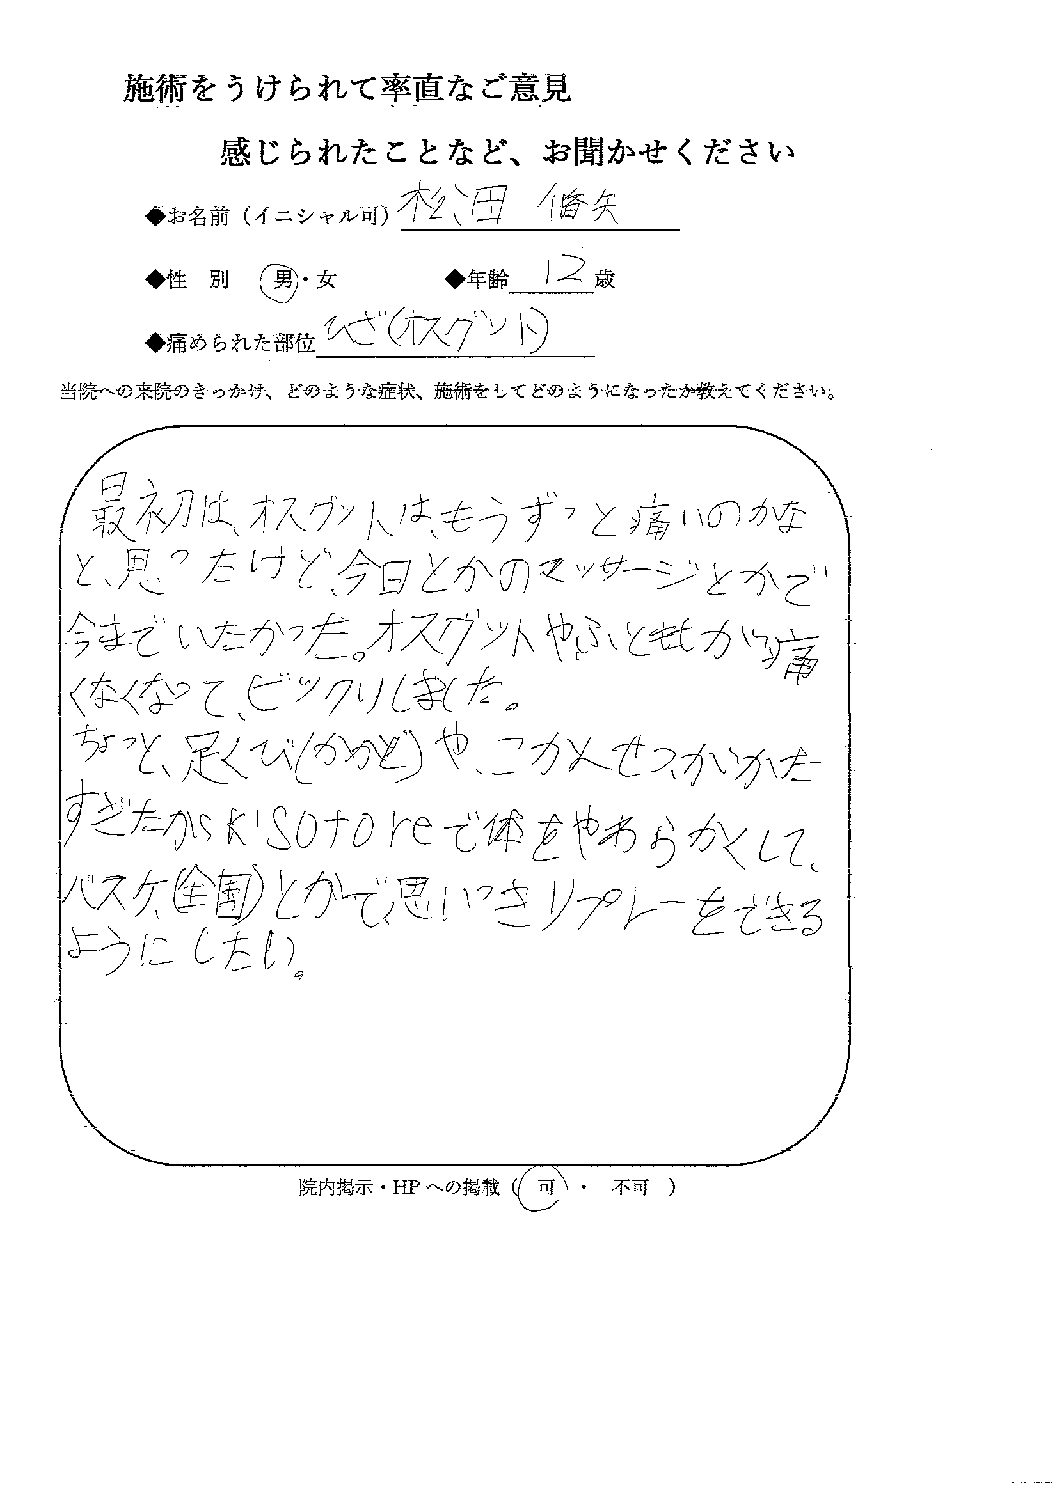 施術をうけられて率直なご意見
感じられたことなど、お聞かせください
◆お名前（イニシャル可）松田 脩矢
◆性 別 男・女 ◆年齢 12 歳
◆痛められた部位 ひざ(オスグット)
当院への来院のきっかけ、どのような症状、施術をしてどのようになったか教えてください。
最初は、オスグットは、もうずっと痛いのかな
と、思ったけど、今日とかのマッサージとかで
今までいたかった。オスグットやふとももが痛
くなくなって、ビックリしました。
ちょっと、足くび(かかと)や、こかんせつがかた
すぎたからkisotoreで体をやわらかくして、
バスケ(全国)とかで、思いっきりプレーをできる
ようにしたい。
院内掲示・HPへの掲載（ 可 ・ 不可 ）